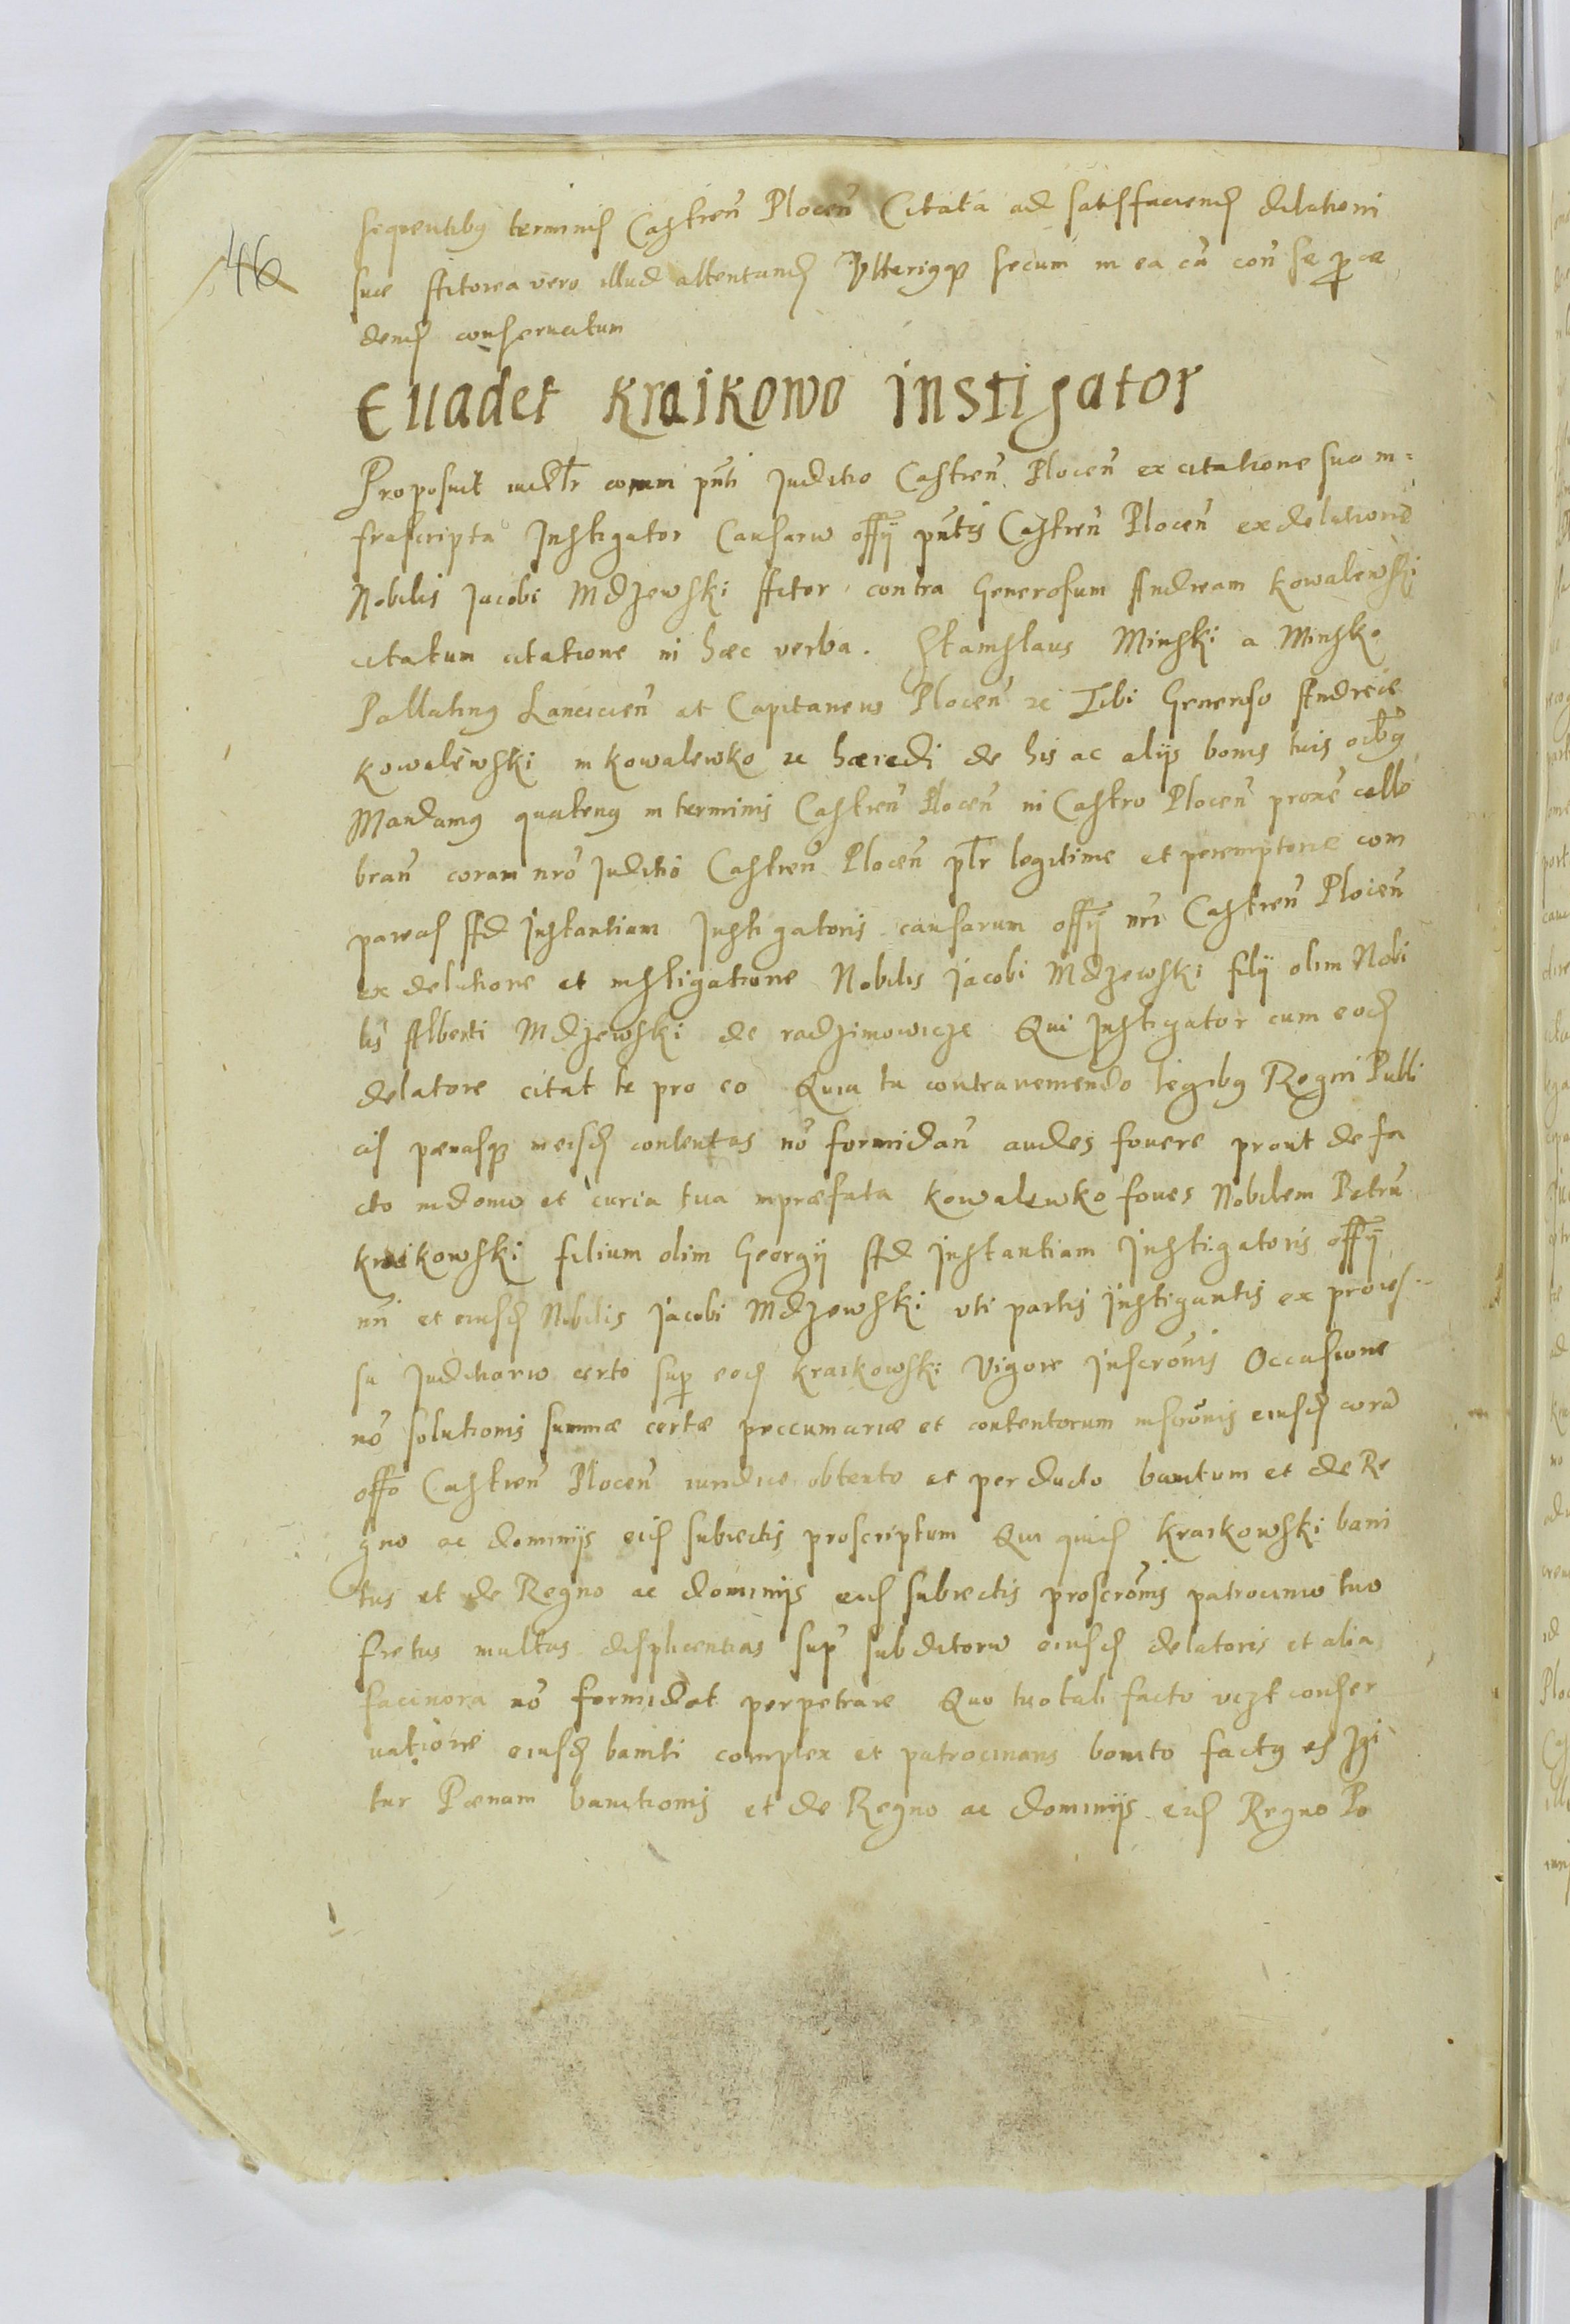 46
sequentibus terminis Castren Plocen Citata ad satisfaciend delationi
suae Actorea vero illud attentand Ulteriusque secum in ea ca con se proce
dend conservatum
Evadet Kraikowo instigator
Proposuit iudlr coram pnti Juditio Castren Plocen ex citatione suo in=
frascripta Instigator Causaru offy pntis Castren Plocen ex delatione
Nobilis Jacobi Mdzewski Actor contra Generosum Andream Kowalewski
citatum citatione in haec verba. Stanislaus Minski a Minsko
Pallatinus Lancicien et Capitaneus Plocen etc Tibi Generoso Andreae
Kowalewski in Kowalewko etc haeredi de his ac alijs bonis tuis oibus
Mandamus quatenus in terminis Castren Plocen in Castro Plocen proxe celle
bran coram nro Juditio Castren Plocen plr legitime et peremptorie com
pareas Ad Instantiam Instigatoris causarum offy nri Castren Plocen
ex delatione et instigatione Nobilis Jacobi Mdzewski filij olim Nobi
lis Alberti Mdzewski de radzimowicze Qui Instigator cum eod
delatore citat te pro eo Quia tu contraveniendo legibus Regni Publi
cis paenasque in eisd contentas no formidan audes fovere prout de fa
cto in domo et curia tua in praefata Kowalewko foves Nobilem Petru
kraikowski filium olim Georgij Ad Instantiam Instigatoris offy
nri et eiusd Nobilis Jacobi Mdzewski uti partis Instigantis ex proces-
su Juditiario certo super eod kraikowski Vigore Inscronis Occasione
no solutionis summae certae peccumariae et contentorum inscronis eiusd cora
offo Castren Plocen iuridice obtento et perducto banitum et de Re
gno ac dominijs eid subiectis proscriptum Qui quid Kraikowski bani
tus et de Regno ac dominijs eid subiectis proscronis patrocinio tuo
fretus multas displicentias sup subditoru eiusd delatoris et alia
facinora no formidat perpetrare Quo tuo tali facto vizt conser
vatione eiusd baniti complex et patrocinans banito factus es Igi
tur Paenam banitionis et de Regno ac dominijs eid Regno Po